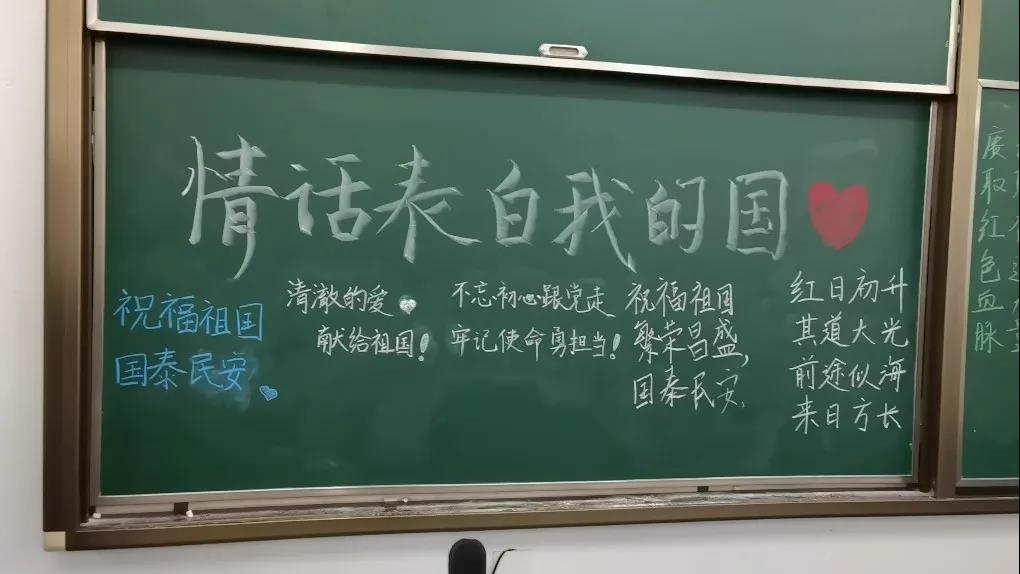 情话表白我的国
祝福祖国
国泰民安
清澈的爱
献给祖国!
不忘初心跟党走
牢记使命勇担当!
祝福祖国
繁荣昌盛,
国泰民安
红日初升
其道大光
前途似海
来日方长
赓
取
红
色
血
脉